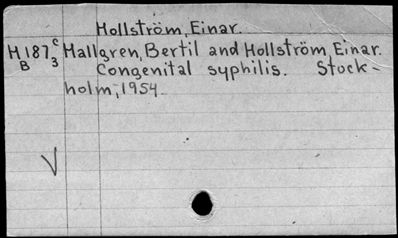 Hollström, Einar.
H187c Hallgren, Bertil and Hollström, Einar.
B 3 Congenital syphilis. Stock-
holm, 1954.